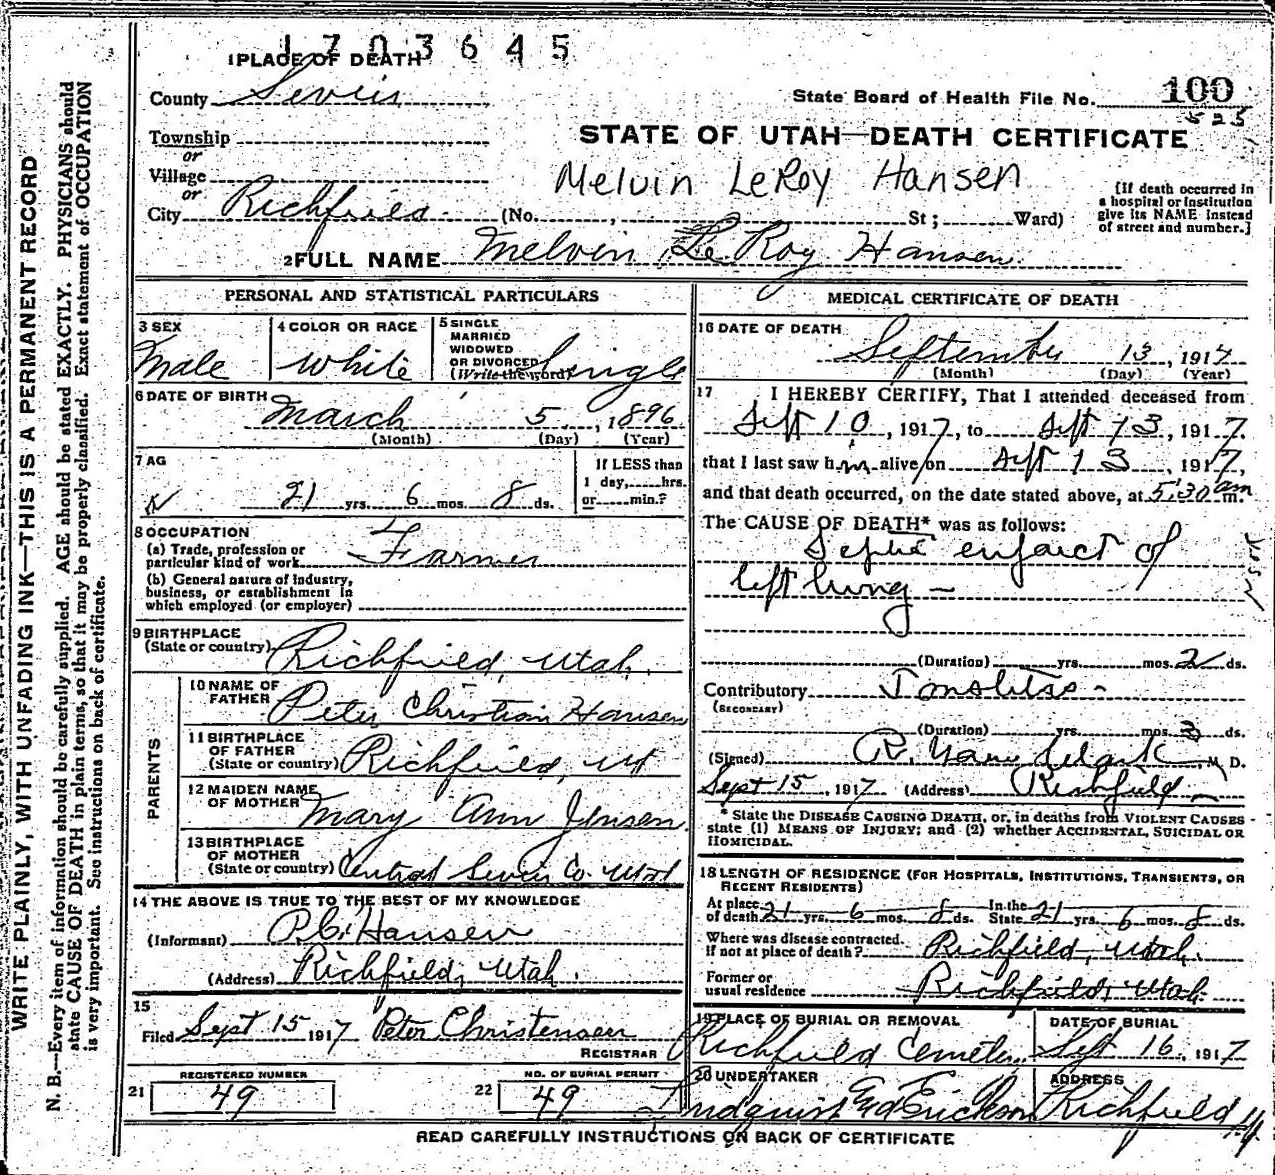 1703645
1 PLACE OF DEATH
County Sevier
State Board of Health File No. 100
Township
or
STATE OF UTAH—DEATH CERTIFICATE
Village
or
Melvin LeRoy Hansen
City Richfield (No. , St; Ward)
[If death occurred in
a hospital or institution
give its NAME instead
of street and number.]
2 FULL NAME Melvin Le Roy Hansen
PERSONAL AND STATISTICAL PARTICULARS
3 SEX
Male
4 COLOR OR RACE
White
5 SINGLE
MARRIED
WIDOWED
OR DIVORCED
(Write the word) Single
6 DATE OF BIRTH
March 5, 1896
(Month) (Day) (Year)
7 AG
21 yrs. 6 mos. 8 ds.
If LESS than
1 day, hrs.
or min.?
8 OCCUPATION
(a) Trade, profession or
particular kind of work Farmer
(b) General nature of industry,
business, or establishment in
which employed (or employer)
9 BIRTHPLACE
(State or country) Richfield, Utah.
PARENTS
10 NAME OF
FATHER Peter Christian Hansen
11 BIRTHPLACE
OF FATHER
(State or country) Richfield, Ut
12 MAIDEN NAME
OF MOTHER Mary Ann Jensen
13 BIRTHPLACE
OF MOTHER
(State or country) Central Sevier Co. Utah
14 THE ABOVE IS TRUE TO THE BEST OF MY KNOWLEDGE
(Informant) P.C. Hansen
(Address) Richfield, Utah.
15
Filed Sept 15 1917 Peter Christensen
REGISTRAR
REGISTERED NUMBER
21 49
NO. OF BURIAL PERMIT
22 49
MEDICAL CERTIFICATE OF DEATH
16 DATE OF DEATH
September 13, 1917
(Month) (Day) (Year)
17 I HEREBY CERTIFY, That I attended deceased from
Sept 10, 1917, to Sept 13, 1917.
that I last saw him alive on Sept 13, 1917,
and that death occurred, on the date stated above, at 5:30 am m.
The CAUSE OF DEATH* was as follows:
Septic enfarct of
left lung —
(Duration) yrs. mos. 2 ds.
Contributory Tonslitss -
(SECONDARY)
(Duration) yrs. mos. 3 ds.
(Signed) R. M. D.
Sept 15, 1917 (Address) Richfield
* State the DISEASE CAUSING DEATH, or, in deaths from VIOLENT CAUSES
state (1) MEANS OF INJURY; and (2) whether ACCIDENTAL, SUICIDAL OR
HOMICIDAL.
18 LENGTH OF RESIDENCE (FOR HOSPITALS, INSTITUTIONS, TRANSIENTS, OR
RECENT RESIDENTS)
At place
of death 21 yrs. 6 mos. 8 ds. In the State 21 yrs. 6 mos. 8 ds.
Where was disease contracted.
If not at place of death? Richfield, Utah.
Former or
usual residence Richfield, Utah.
19 PLACE OF BURIAL OR REMOVAL
Richfield Cemetery
DATE OF BURIAL
Sept 16, 1917
20 UNDERTAKER
Lindquist Ed Erickson
ADDRESS
Richfield
READ CAREFULLY INSTRUCTIONS ON BACK OF CERTIFICATE
WRITE PLAINLY, WITH UNFADING INK—THIS IS A PERMANENT RECORD
N. B.—Every item of information should be carefully supplied. AGE should be stated EXACTLY. PHYSICIANS should
state CAUSE OF DEATH in plain terms, so that it may be properly classified. Exact statement of OCCUPATION
is very important. See instructions on back of certificate.